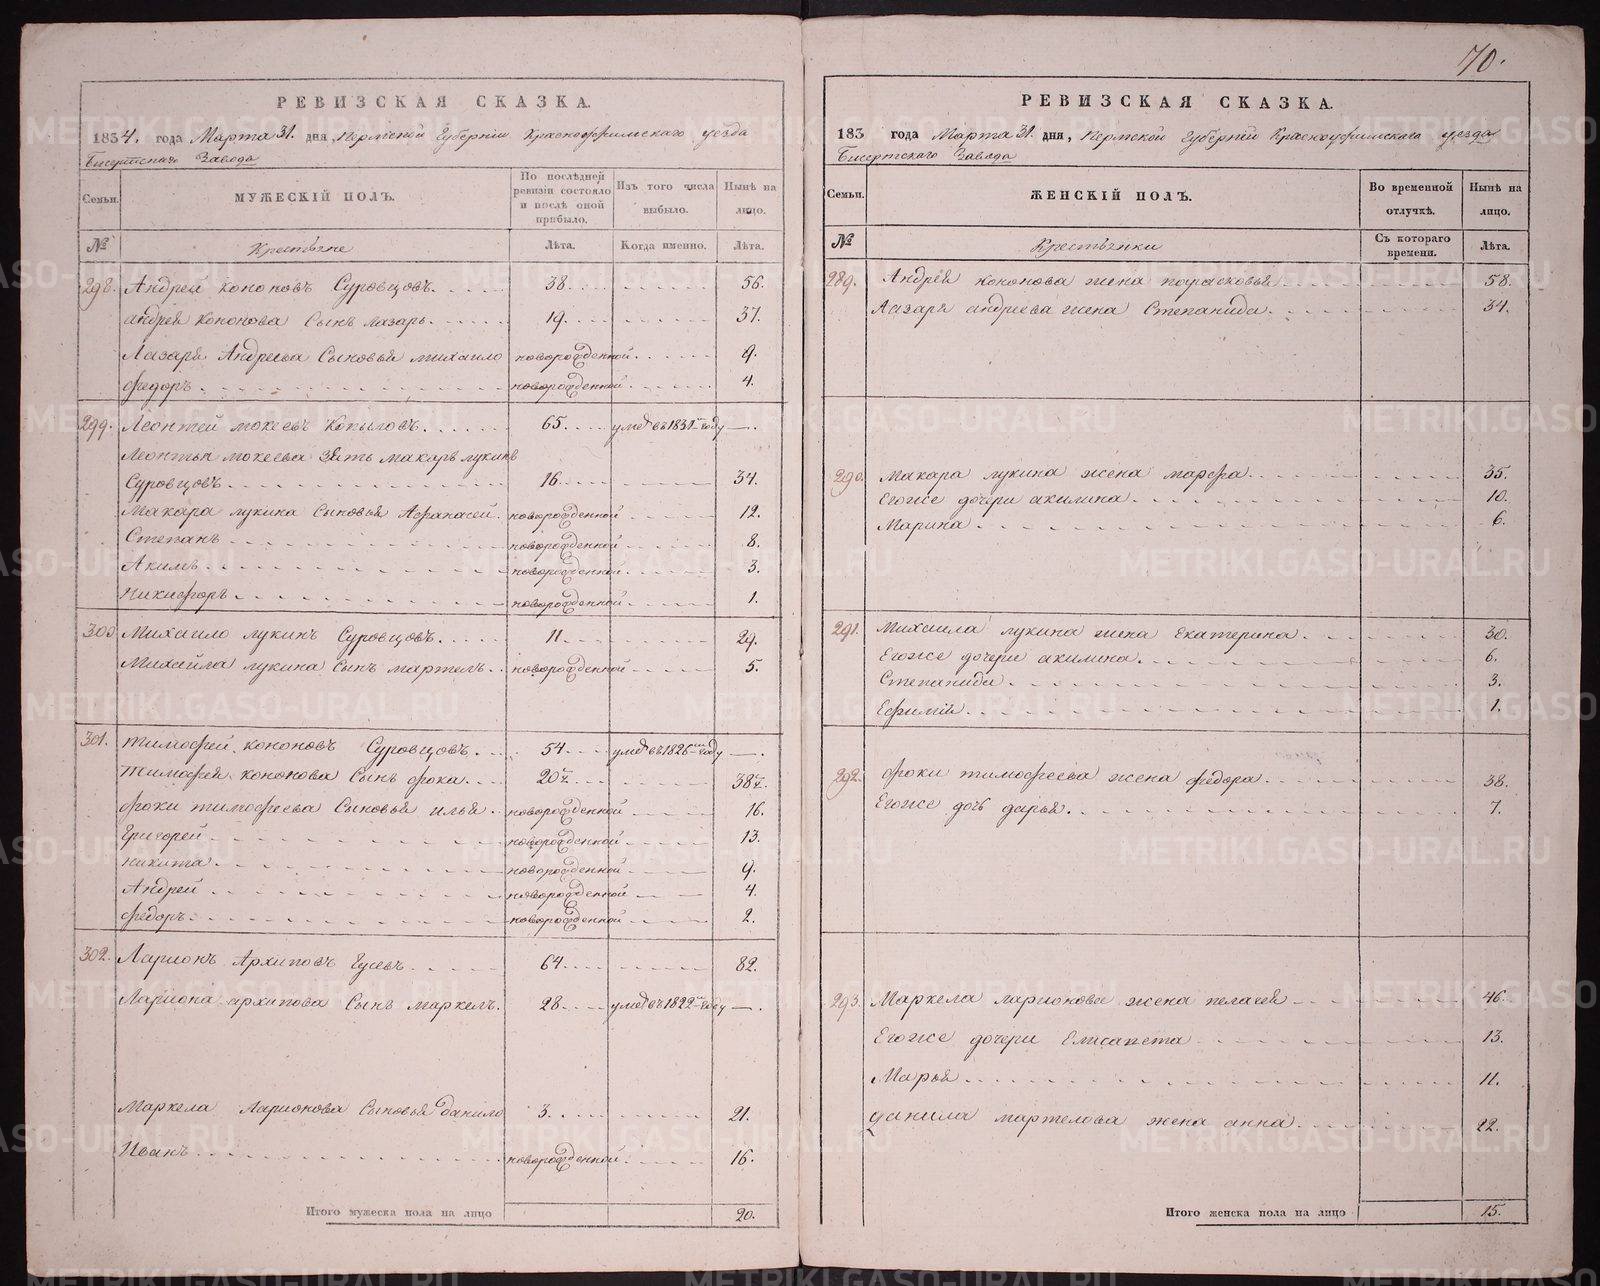 70.
РЕВИЗСКАЯ СКАЗКА.
1834. года Марта 31. дня, Пермской Губернiи Красноуфимскаго уезда
Бисертскаго Завода
Семьи.
МУЖЕСКІЙ ПОЛЪ.
По послѣдней ревизіи состояло и послѣ оной прибыло.
Изъ того числа выбыло.
Нынѣ на лицо.
№
Крестьяне
Лѣта.
Когда именно.
Лѣта.
298. Андрей кононовъ Суровцовъ. 38. 56.
андрея кононова Сынъ лазарь. 19. 37.
Лазаря Андреева Сыновья михаило новорожденной. 9.
федоръ. новорожденной. 4.
299. Леонтей мокеевъ Копыловъ. 65. умеръ въ 1831 году —.
Леонтья мокеева зять макаръ лукинъ
Суровцовъ. 16. 34.
Макара лукина Сыновья Афанасей. новорожденной 12.
Степанъ новорожденной 8.
Акимъ. новорожденной. 3.
Никифоръ. новорожденной. 1.
300 Михаило лукинъ Суровцовъ. 11. 29.
Михайла лукина Сынъ мартемъ. новорожденной 5.
301. тимофей кононовъ Суровцовъ. 54. умеръ въ 1826 году —.
тимофея кононова Сынъ фока. 20¾. 38¾.
фоки тимофеева Сыновья илья. новорожденной 16.
Григорей новорожденной 13.
никита. новорожденной. 9.
Андрей новорожденной 4.
федоръ. новорожденной. 2.
302. Ларионъ Архиповъ Гусевъ. 64. 82.
Лариона архипова Сынъ маркелъ. 28. умеръ въ 1822 году —.
Маркела Ларионова Сыновья данило 3. 21.
Иванъ. новорожденной. 16.
Итого мужеска пола на лицо 20.
РЕВИЗСКАЯ СКАЗКА.
183 года Марта 31. дня, Пермской Губернiи Красноуфимскаго уезда
Бисертскаго Завода
Семьи.
ЖЕНСКІЙ ПОЛЪ.
Во временной отлучкѣ.
Нынѣ на лицо.
№
Крестьянки
Съ котораго времени.
Лѣта.
289. Андрея кононова жена парасковья 58.
Лазаря андреева жена Степанида. 34.
290. Макара лукина жена марфа. 35.
Егоже дочери акилина. 10.
Марина 6.
291. Михаила лукина жена Екатерина. 30.
Егоже дочери акилина. 6.
Степанида. 3.
Ефимiя. 1.
292. фоки тимофеева жена федора. 38.
Егоже дочь дарья. 7.
293. Маркела ларионова жена пелагея 46.
Егоже дочери Елисавета 13.
Марья. 11.
данила маркелова жена анна. 22.
Итого женска пола на лицо 15.
METRIKI.GASO-URAL.RU